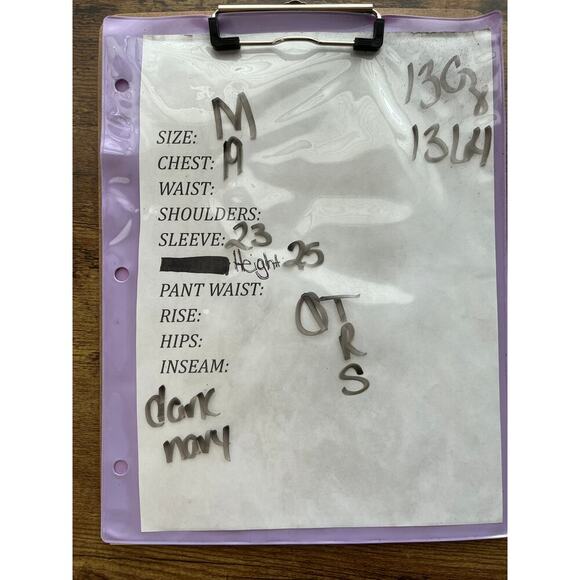 13C8
13L4
SIZE: M
CHEST: 19
WAIST:
SHOULDERS:
SLEEVE: 23
Height: 25
PANT WAIST:
RISE:
HIPS:
INSEAM:
OT
R
S
dark
navy